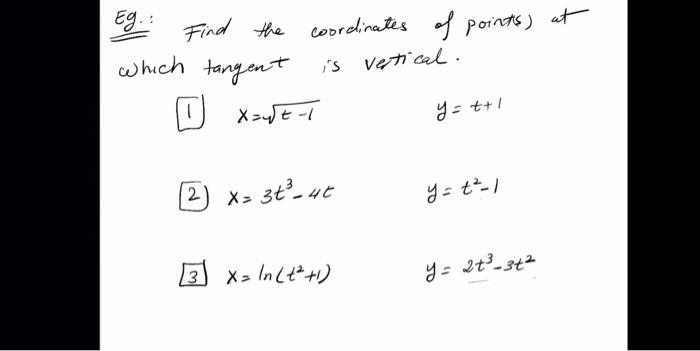 Eg.: Find the coordinates of point(s) at
which tangent is vertical.
1 x=√t-1 y = t+1
2 x= 3t³-4t y = t²-1
3 x= ln(t²+1) y = 2t³-3t²